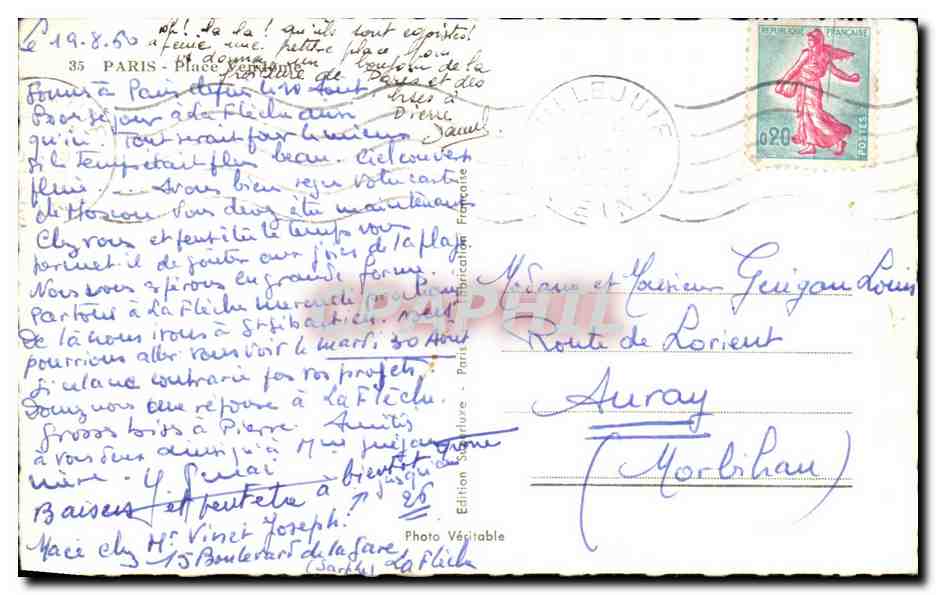 le 19.8.60
oh! la la! qu'ils sont egoistes!
une petite place pour
donner un bonjour de la
de Paris et des
bises à
Pierre
Daniel
35 PARIS - Place Vendôme
à Paris depuis le 10 Août
Bon séjour à La Flèche ainsi
qu'ici. Tout serait pour le mieux
si le temps était plus beau. Ciel couvert
pluie ... Avons bien reçu votre carte
de Moscou. Vous devez être maintenant
chez vous et peut être le temps vous
permet-il de goûter aux joies de la plage
Nous vous espérons en grande forme.
Partons à La Flèche mercredi
De là nous irons à
pourrions aller vous voir le mardi 30 Août
si cela ne contrarie pas vos projets.
Donnez nous une réponse à La Flèche.
Grosses bises à Pierre. Amitiés
à vous deux ainsi qu'à Mme
mère.
Baisers et peut etre à bientôt
jusqu'au
26
Macé chez Mr Vinset Joseph
15 Boulevard de la Gare
(Sarthe) La Flèche
Edition Superluxe - Paris - Fabrication Française
Photo Véritable
CPAPHIL
VILLEJUIF
SEINE
REPUBLIQUE FRANÇAISE
0,20
POSTES
Madame et Monsieur Guégan Louis
Route de Lorient
Auray
(Morbihan)